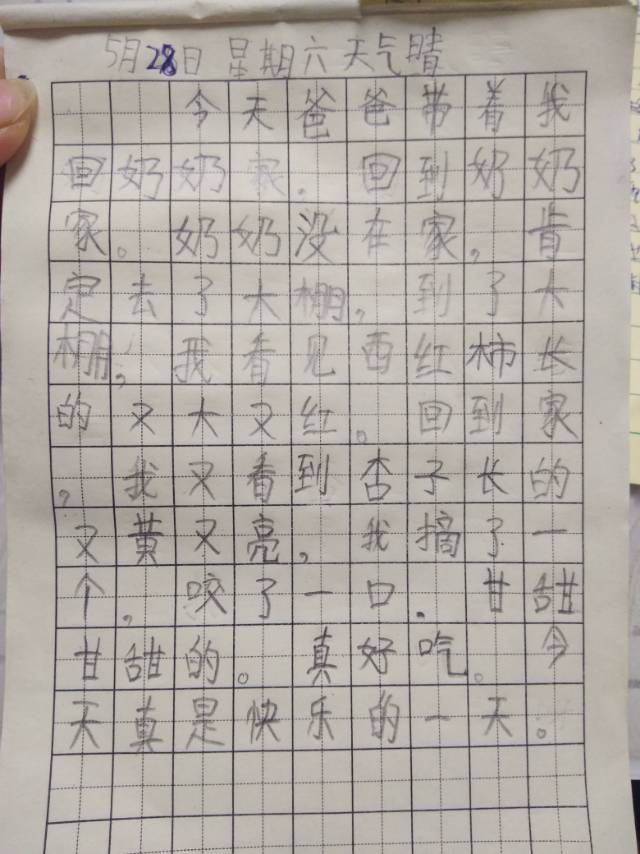 5月28日 星期六 天气晴
今天爸爸带着我
回奶奶家.回到奶奶
家。奶奶没在家，肯
定去了大棚，到了大
棚，我看见西红柿长
的又大又红。回到家
，我又看到杏子长的
又黄又亮，我摘了一
个，咬了一口.甘甜
甘甜的。真好吃。今
天真是快乐的一天。